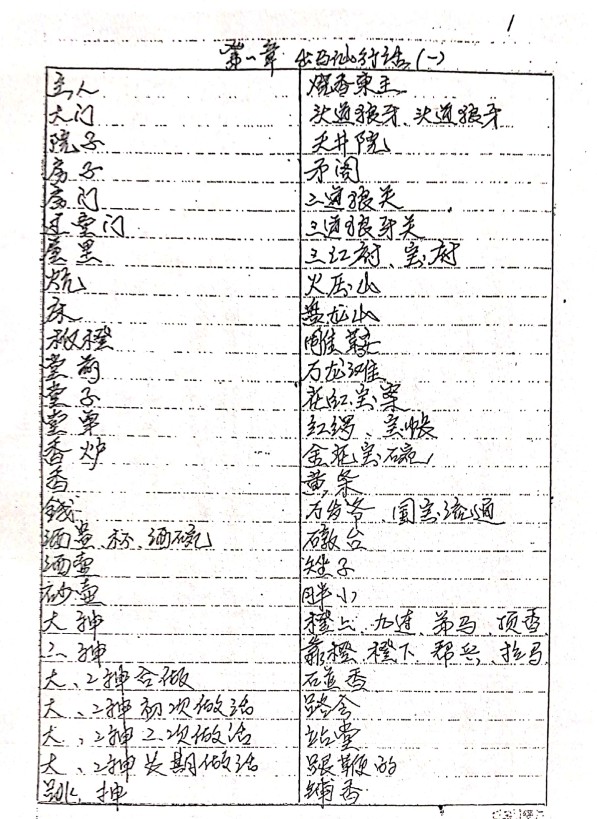 1
第一章 出马仙行话（一）
主人 烧香东主
大门 头道狼牙、头道狼牙
院子 天井院
房子 矛阁
房门 二道狼关
过堂门 三道狼牙关
屋里 三江府、宝府
炕 火压山
床 盘龙山
板橙 雕鞍
堂前 万龙滩
堂子 花红宝案
堂单 红绸、宝帐
香炉 金花宝碗
香 黄条
錢 万分爷、国宝流通
酒盅、杯、酒碗 礅台
酒壶 矬子
砂壶 胖小
大神 橙上、九连、弟马、顶香
二神 靠橙、橙下、帮兵、拉马
大、2神合做
大、2神初次做活
大、2神二次做活 站堂
大、2神长期做活 跟鞭的
跳、神